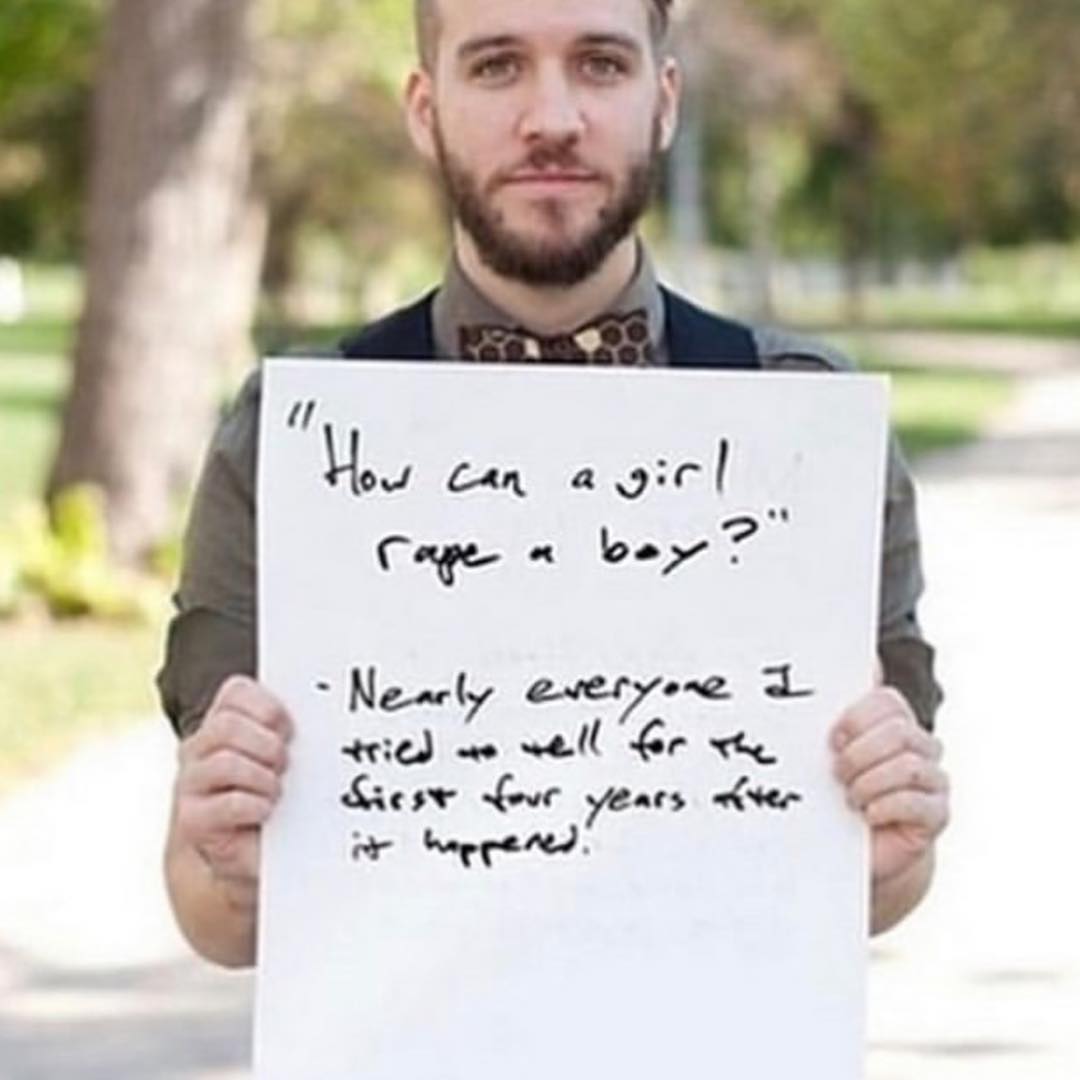 "How can a girl
rape a boy?"
- Nearly everyone I
tried to tell for the
first four years after
it happened.